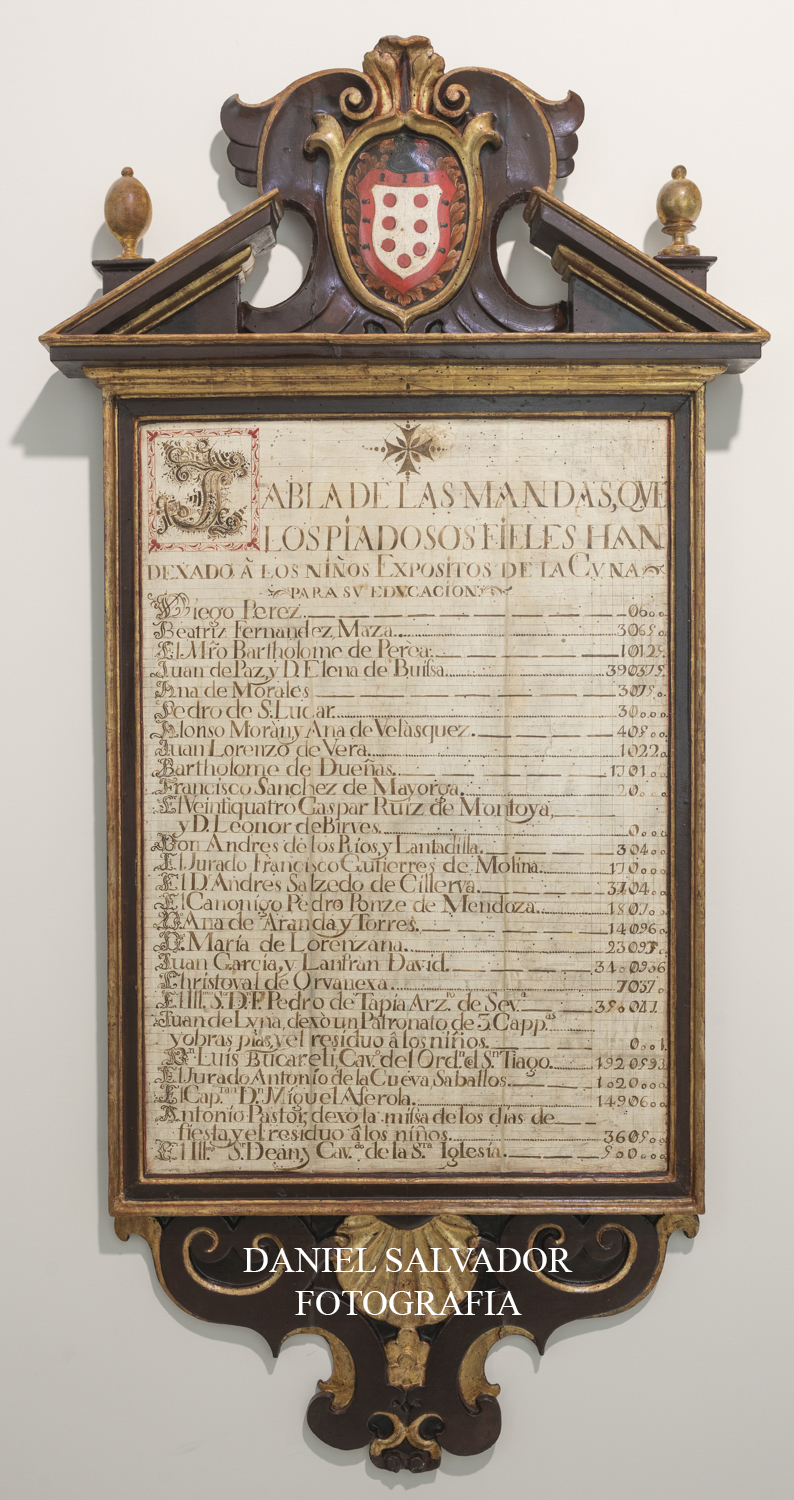 TABLA DE LAS MANDAS, QVE
LOS PIADOSOS FIELES HAN
DEXADO À LOS NIÑOS EXPOSITOS DE LA CVNA
PARA SV EDVCACION
Diego Perez
Beatriz Fernandez Maza
El Mro Bartholome de Perea
Juan de Paz, y D. Elena de Buissa
Ana de Morales 3075
Pedro de S. Lucar
Alonso Moràn y Ana de Velàsquez
Juan Lorenzo de Vera 1022
Bartholome de Dueñas
Francisco Sanchez de Mayorga
El Veintiquatro Gaspar Ruiz de Montoya,
y D. Leonor de Birves
Don Andres de los Rios, y Lantadilla
El Jurado Francisco Gutierres de Molina
El D. Andres Salzedo de Cillerva
El Canonigo Pedro Ponze de Mendoza
D. Ana de Aranda y Torres 14096
D. Maria de Lorenzana
Juan Garcia, y Lanfran David
Christoval de Orvanexa 7037
El Ill. S. D. F. Pedro de Tapia Arz. de Sev.
Juan de Lyna, dexò un Patronato de 3 Capp.as
y obras pias, y el residuo à los niños
D.n Luis Bucareli, Cav. del Ord.n d S.n Tiago 192059
El Jurado Antonio de la Cueva, Saballos
El Cap.tan D.n Miguel Aferola 14906
Antonio Pastor, dexò la missa de los dias de
fiesta, y el residuo â los niños
El Ill. S.r Dean, y Cav.do de la S.ta Iglesia
DANIEL SALVADOR
FOTOGRAFIA